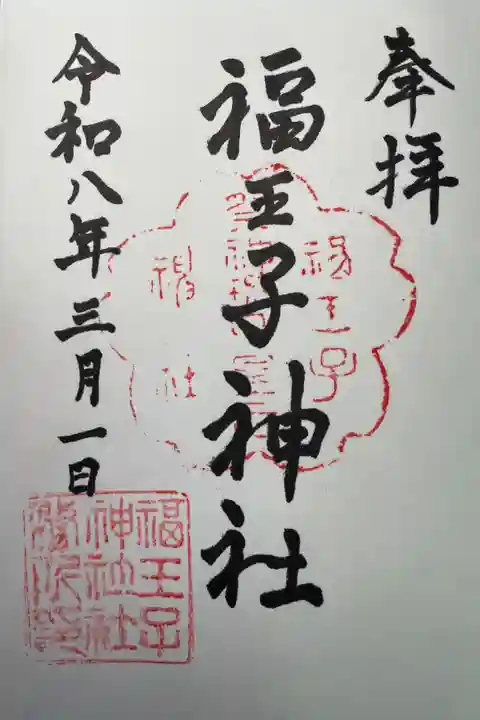 奉拝
福王子神社
令和八年三月一日
福王子
神社
福王子
神社社